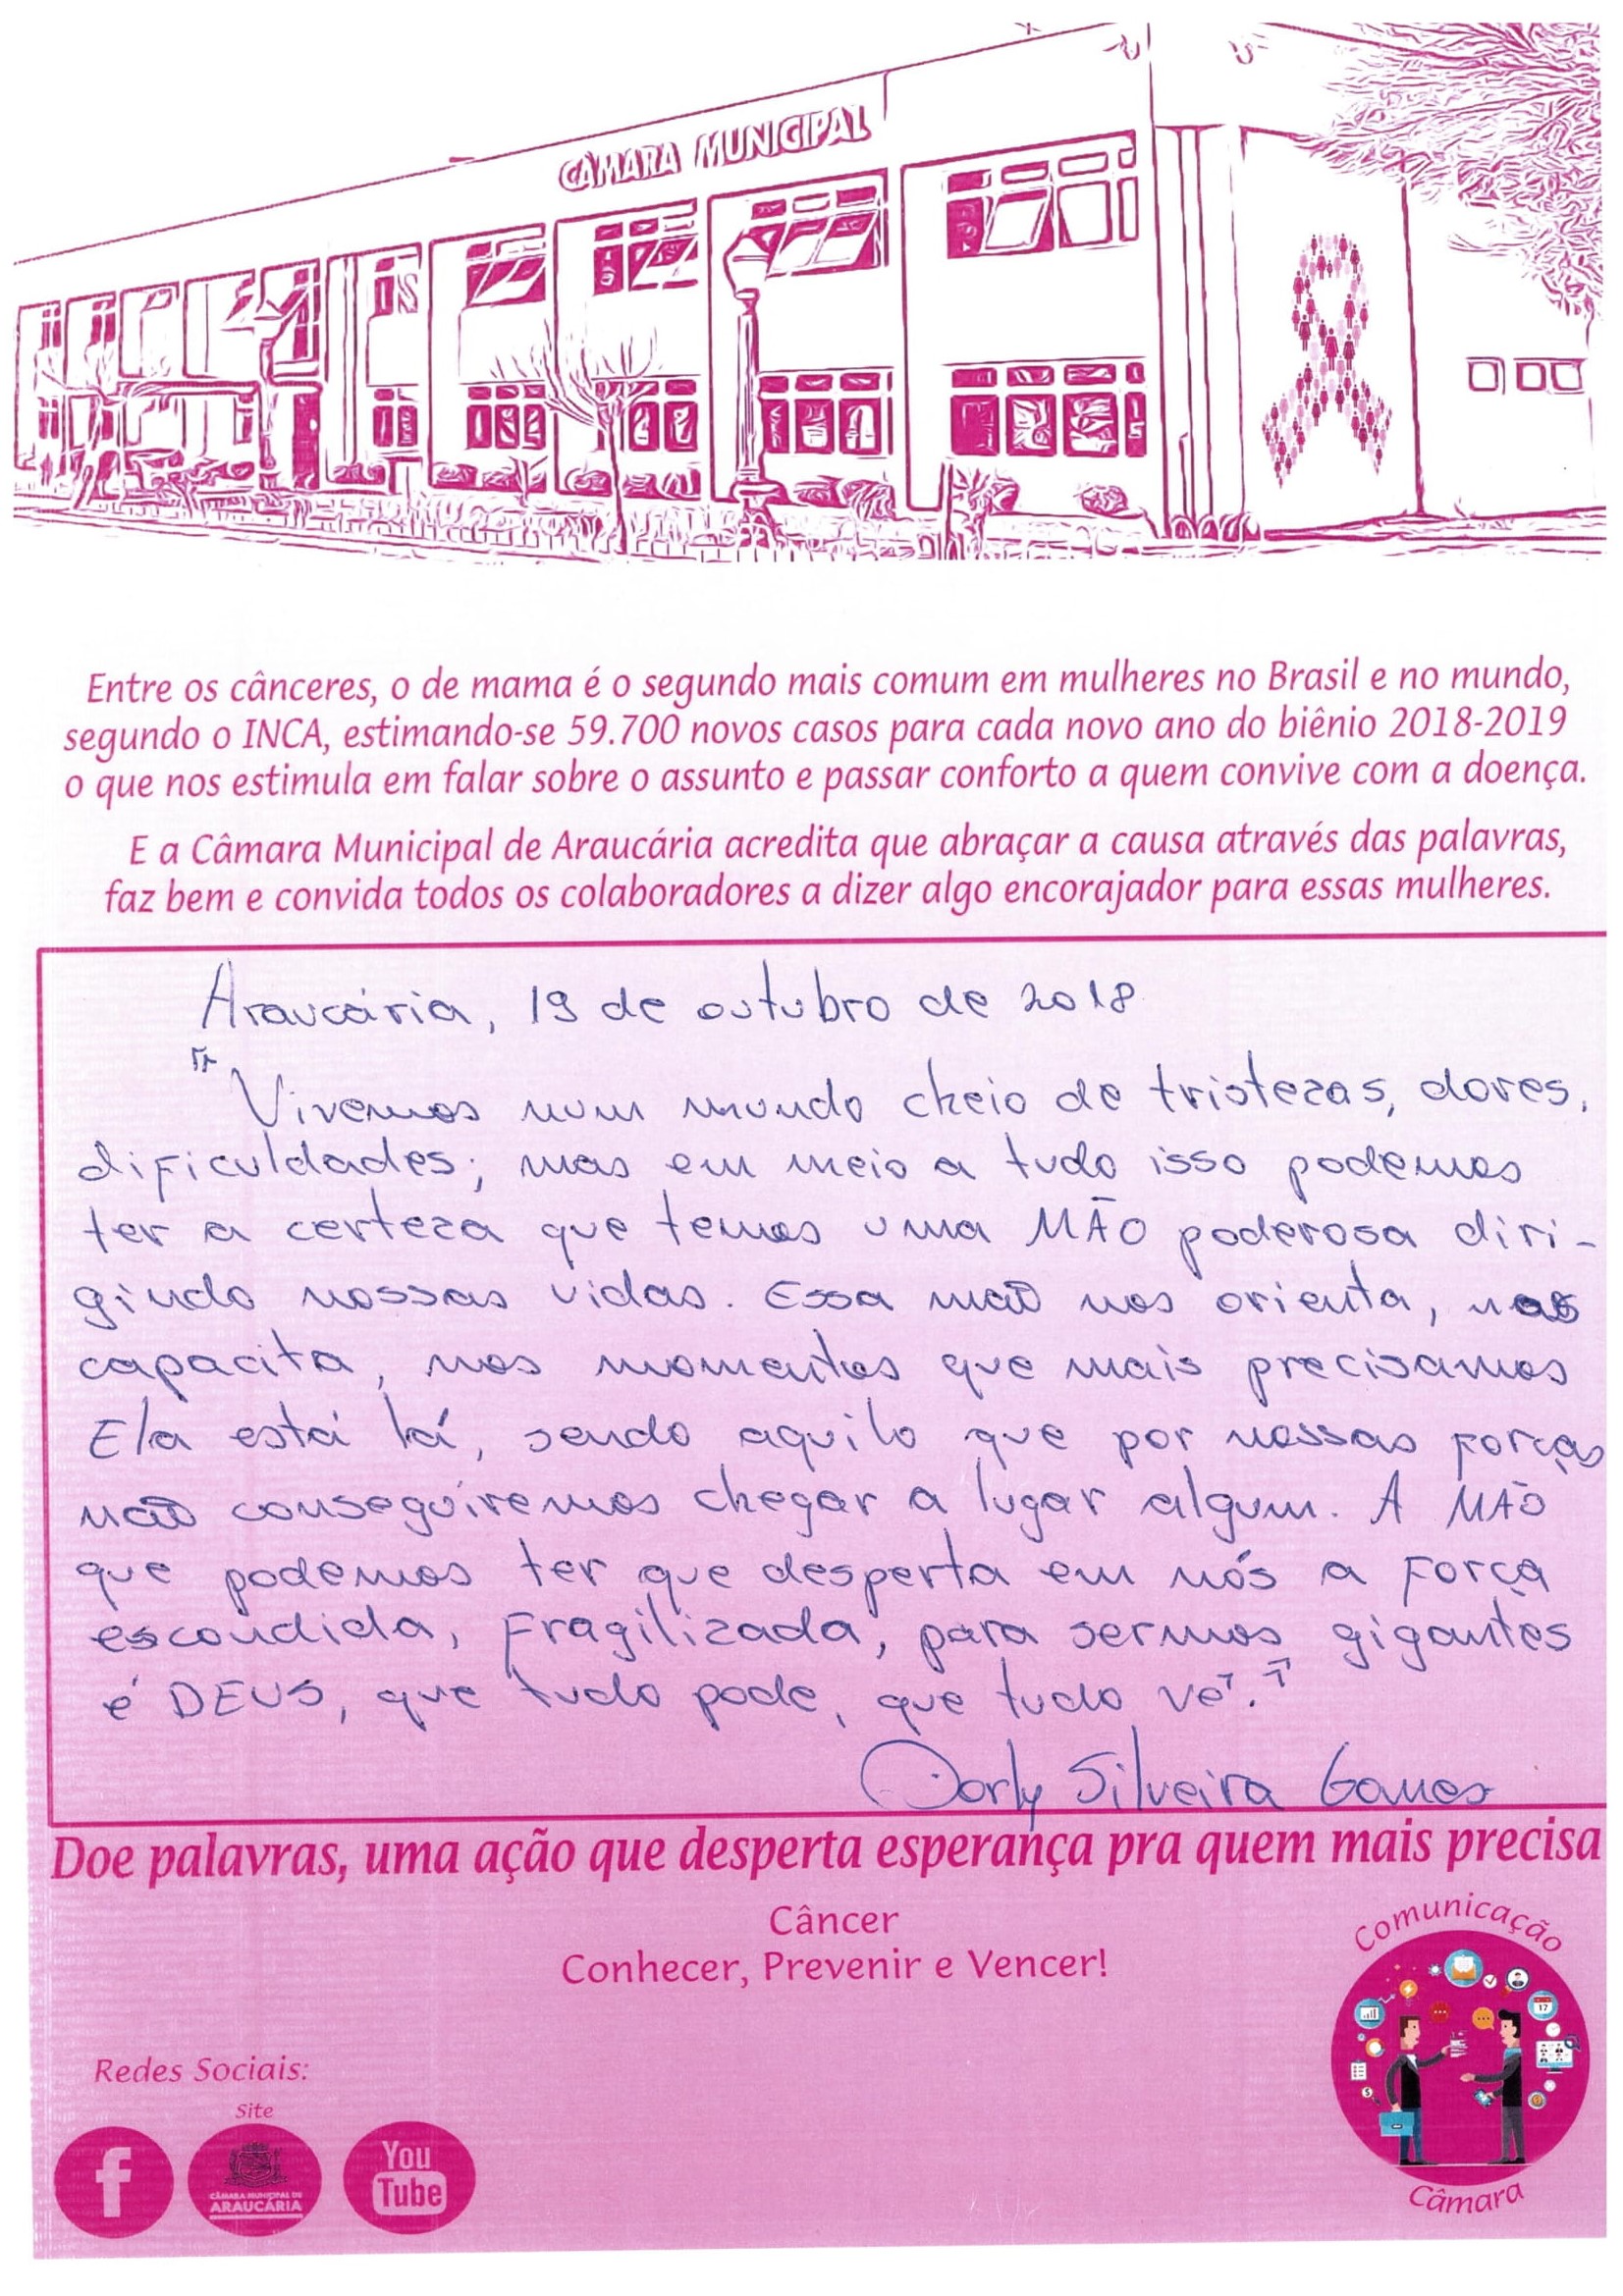 CÂMARA MUNICIPAL
Entre os cânceres, o de mama é o segundo mais comum em mulheres no Brasil e no mundo,
segundo o INCA, estimando-se 59.700 novos casos para cada novo ano do biênio 2018-2019
o que nos estimula em falar sobre o assunto e passar conforto a quem convive com a doença.
E a Câmara Municipal de Araucária acredita que abraçar a causa através das palavras,
faz bem e convida todos os colaboradores a dizer algo encorajador para essas mulheres.
Araucária, 19 de outubro de 2018
"Vivemos num mundo cheio de tristezas, dores,
dificuldades; mas em meio a tudo isso podemos
ter a certeza que temos uma MÃO poderosa diri-
gindo nossas vidas. Essa mão nos orienta, nos
capacita, nos momentos que mais precisamos
Ela está lá, sendo aquilo que por nossas forças
não conseguiremos chegar a lugar algum. A MÃO
que podemos ter que desperta em nós a força
escondida, fragilizada, para sermos gigantes
é DEUS, que tudo pode, que tudo vê."
Dorly Silveira Gomes
Doe palavras, uma ação que desperta esperança pra quem mais precisa
Câncer
Conhecer, Prevenir e Vencer!
Comunicação
17
Câmara
Redes Sociais:
Site
f
CÂMARA MUNICIPAL DE
ARAUCÁRIA
You
Tube